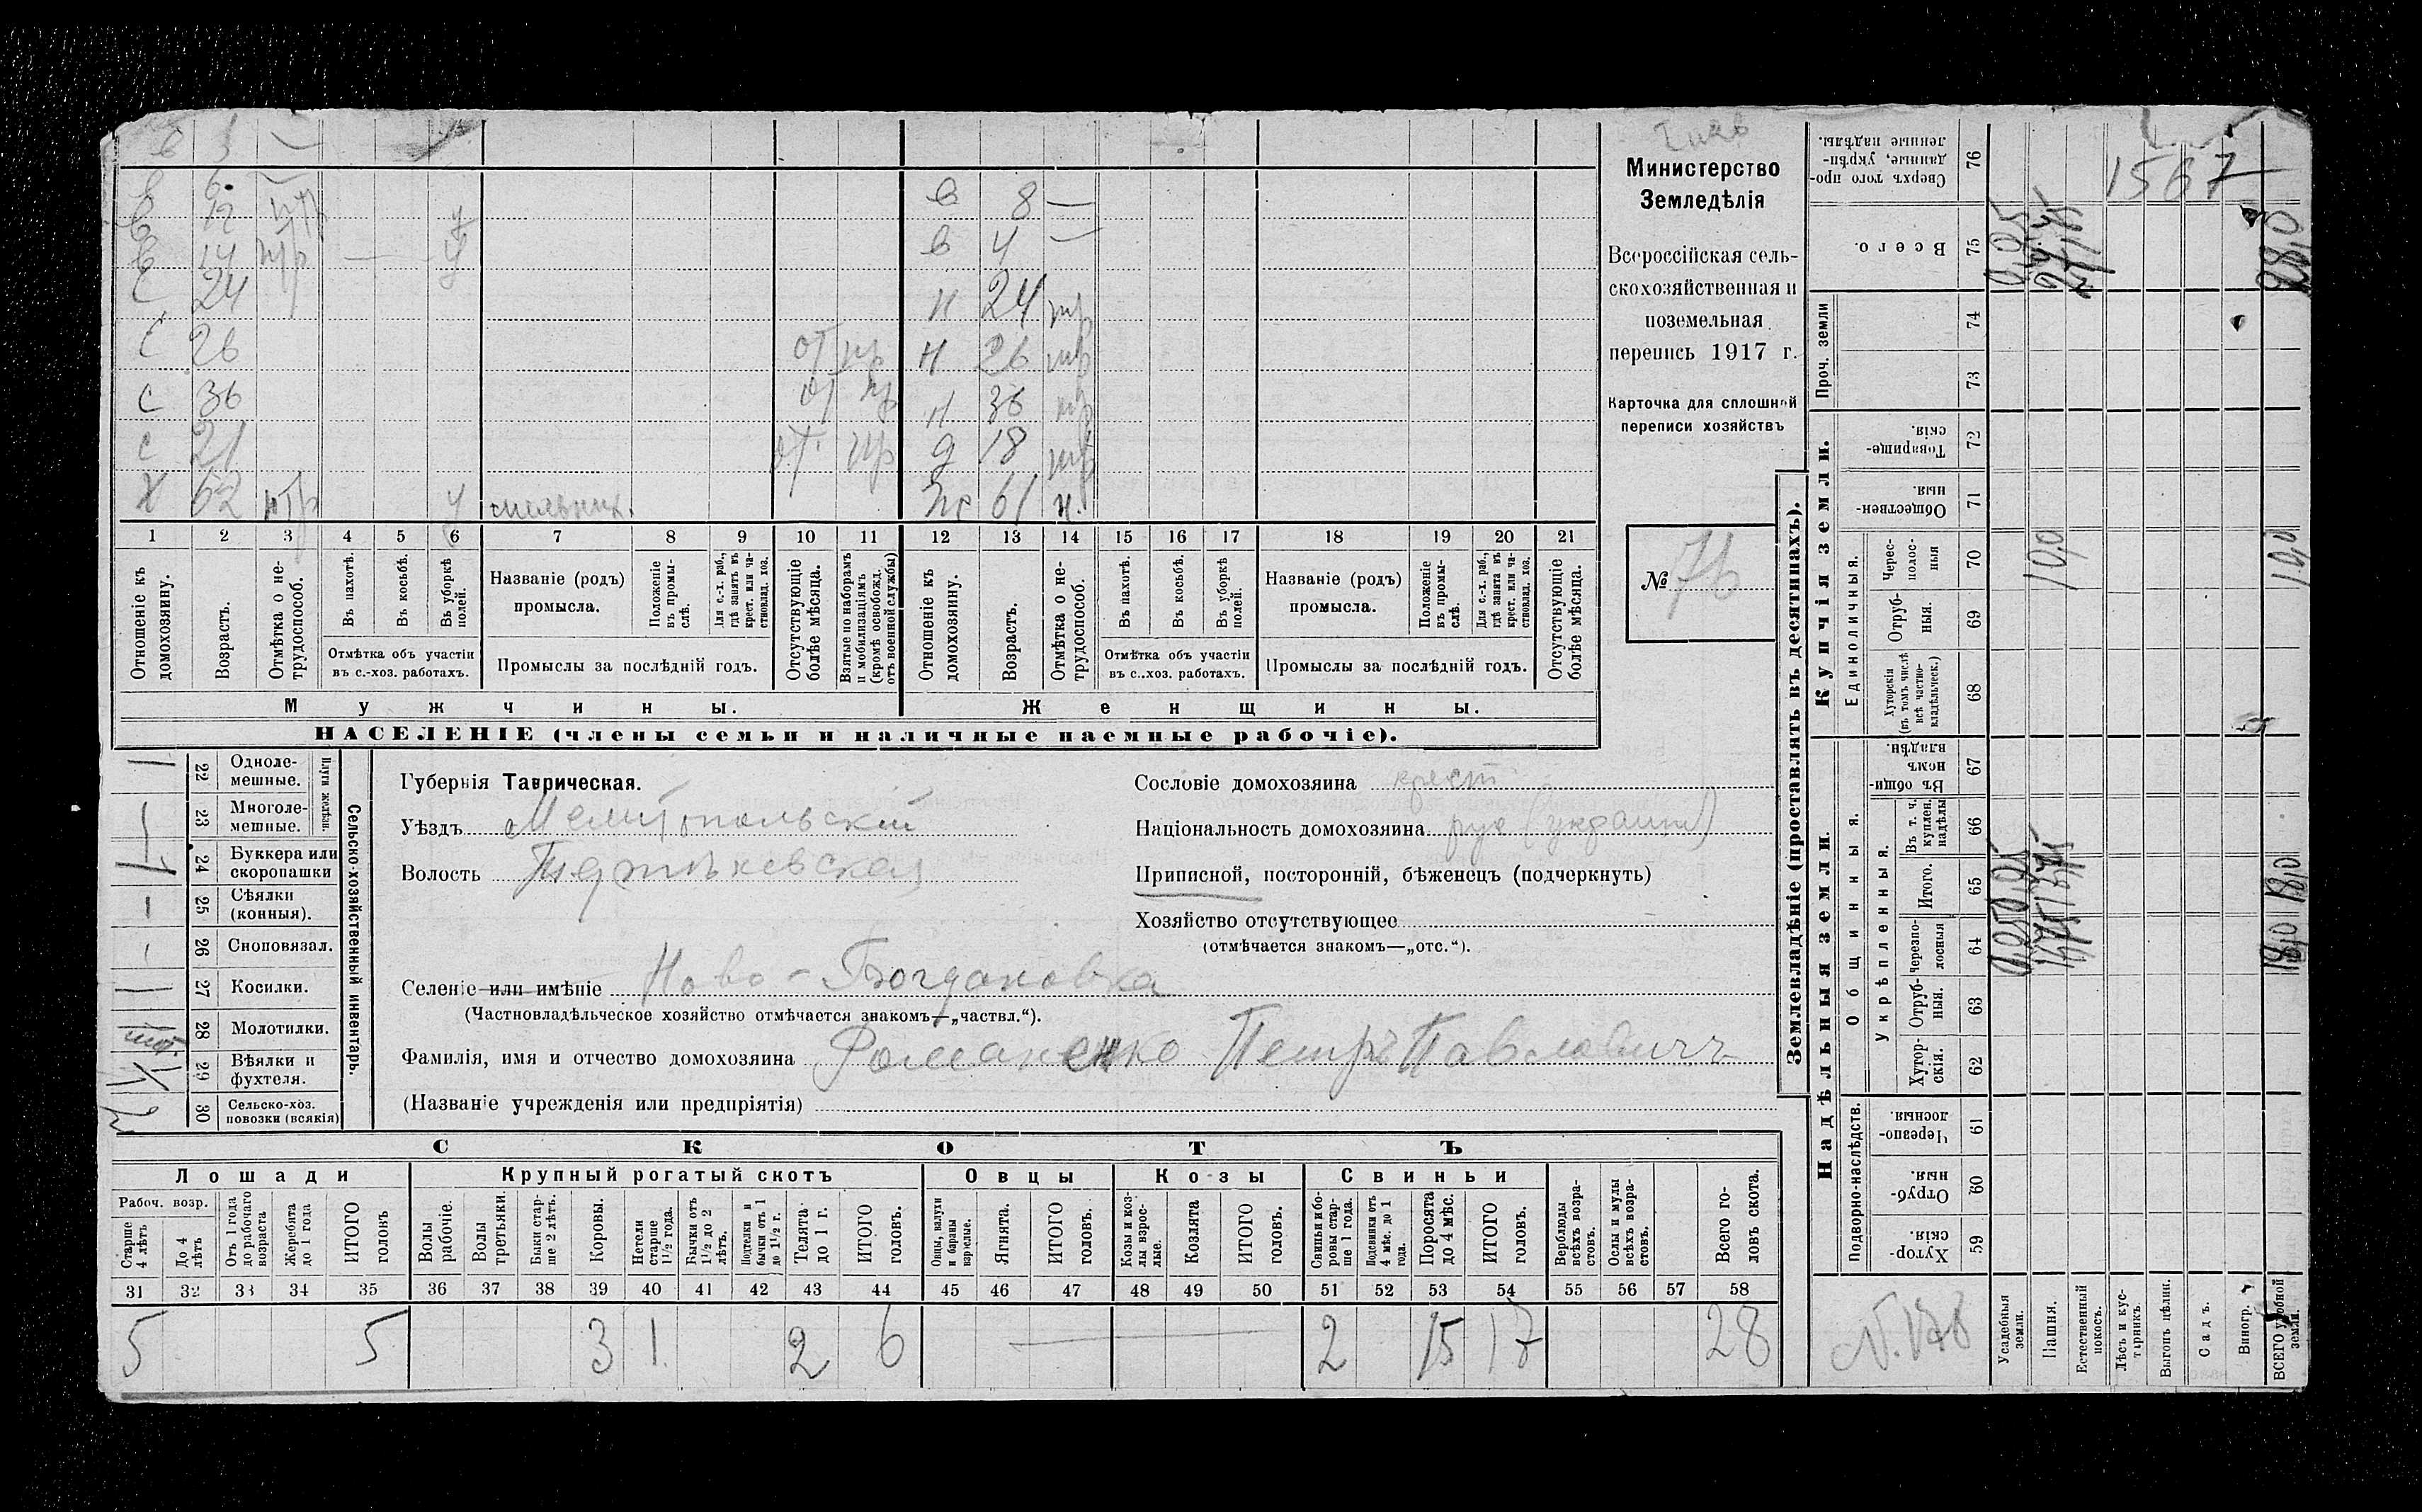 в 3 —
в 6 — в 8 —
в 12 н/р у в 4 —
в 14 н/р — у н 24 н/р
с 24
с 26 от пр н 26 н/р
с 36 от пр н 36 н/р
с 21 от пр д 18 н/р
х 62 н/р у мельник. ж 61 н.
1 2 3 4 5 6 7 8 9 10 11 12 13 14 15 16 17 18 19 20 21
Отношеніе къ домохозяину.
Возрастъ.
Отмѣтка о не-трудоспособ.
Въ пахотѣ.
Въ косьбѣ.
Въ уборкѣ полей.
Отмѣтка объ участіи въ с.-хоз. работахъ.
Названіе (родъ) промысла.
Положеніе въ промы-слѣ.
Для с.-х. раб., гдѣ занятъ въ крест. или ча-стновлад. хоз.
Промыслы за послѣдній годъ.
Отсутствующіе болѣе мѣсяца.
Взятые по наборамъ и мобилизаціямъ (кромѣ освобожд. отъ военной службы)
Отношеніе къ домохозяину.
Возрастъ.
Отмѣтка о не-трудоспособ.
Въ пахотѣ.
Въ косьбѣ.
Въ уборкѣ полей.
Отмѣтка объ участіи въ с..хоз. работахъ.
Названіе (родъ) промысла.
Положеніе въ промы-слѣ.
Для с.-х. раб., гдѣ занята въ крест. или ча-стновлад. хоз.
Промыслы за послѣдній годъ.
Отсутствующіе болѣе мѣсяца.
Мужчины. Женщины.
НАСЕЛЕНІЕ (члены семьи и наличные наемные рабочіе).
Министерство
Земледѣлія
Всероссійская сель-
скохозяйственная и
поземельная
перепись 1917 г.
Карточка для сплошной
переписи хозяйствъ
№ 76
22 Одноле-мешные.
23 Многоле-мешные.
Плуги желѣзн.
24 Буккера или скоропашки
25 Сѣялки (конныя).
26 Сноповязал.
27 Косилки.
28 Молотилки.
29 Вѣялки и фухтеля.
30 Сельско-хоз. повозки (всякія)
Сельско-хозяйственный инвентарь.
Губернія Таврическая.
Уѣздъ Мелитопольскій
Волость Тяржиевская
Сословіе домохозяина крест
Національность домохозяина рус (украин)
Приписной, посторонній, бѣженецъ (подчеркнуть)
Хозяйство отсутствующее
(отмѣчается знакомъ—„отс.“).
Селеніе или имѣніе Ново-Богдановка
(Частновладѣльческое хозяйство отмѣчается знакомъ—„частвл.“).
Фамилія, имя и отчество домохозяина Романенко Петръ Павловичъ
(Названіе учрежденія или предпріятія)
СКОТЪ
Лошади Крупный рогатый скотъ Овцы Козы Свиньи
Рабоч. возр.
Старше 4 лѣтъ
До 4 лѣтъ
Отъ 1 года до рабочаго возраста
Жеребята до 1 года
ИТОГО головъ
Волы рабочіе.
Волы третьяки.
Быки стар-ше 2 лѣтъ.
Коровы.
Нетели старше 1½ года.
Бычки отъ 1½ до 2 лѣтъ.
Подтелки и бычки отъ 1 до 1½ г.
Телята до 1 г.
ИТОГО головъ.
Овцы, валухи и бараны взрослые.
Ягнята.
ИТОГО головъ.
Козы и коз-лы взрос-лые.
Козлята
ИТОГО головъ.
Свиньи и бо-ровы стар-ше 1 года.
Подсвинки отъ 4 мѣс. до 1 года.
Поросята до 4 мѣс.
ИТОГО головъ.
Верблюды всѣхъ возра-стовъ.
Ослы и мулы всѣхъ возра-стовъ.
Всего го-ловъ скота.
31 32 33 34 35 36 37 38 39 40 41 42 43 44 45 46 47 48 49 50 51 52 53 54 55 56 57 58
5 5 3 1 2 6 — 2 15 17 28
Землевладѣніе (проставлять въ десятинахъ).
Купчія земли.
Надѣльныя земли
76 Сверхъ того про-данные, укрѣп-ленные надѣлы.
75 Всего.
Проч. земли
74
73
72 Товарище-скія.
71 Обществен-ныя.
Единоличныя.
70 Черес-полос-ныя
69 Отруб-ныя.
68 Хуторскія (въ томъ числѣ всѣ частно-владѣльческ.)
Общинныя.
67 Въ общи-номъ владѣн.
Укрѣпленныя.
66 Въ т. ч. куплен. надѣлы
65 Итого.
64 Черезпо-лосныя
63 Отруб-ныя.
62 Хутор-скія.
Подворно-наслѣдств.
61 Черезпо-лосныя.
60 Отруб-ныя.
59 Хутор-скія.
1567
28,0
10,0 10,0
18,0 18,0
Усадебныя земли.
Пашня.
Естественный покосъ.
Лѣсъ и кус-тарникъ.
Выгонъ цѣлин.
Садъ.
Виногр.
ВСЕГО удобной земли.